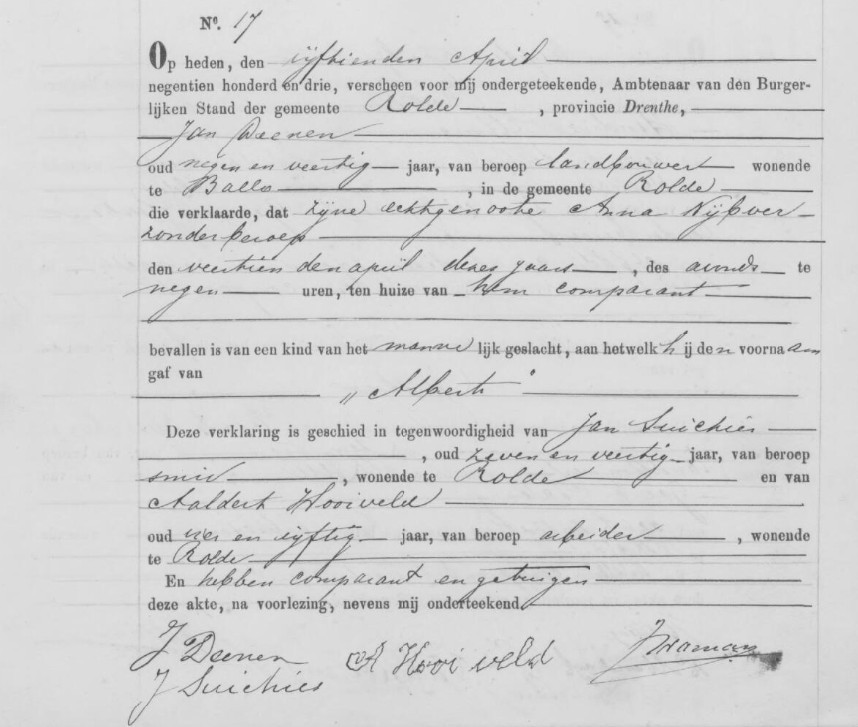 No. 17
Op heden, den vijftienden April
negentien honderd en drie, verscheen voor mij ondergeteekende, Ambtenaar van den Burger-
lijken Stand der gemeente Rolde , provincie Drenthe,
Jan Deenen
oud negen en veertig jaar, van beroep landbouwer wonende
te Balloo , in de gemeente Rolde
die verklaarde, dat zijne echtgenoote Anna Nijboer
zonder beroep
den veertienden april dezes jaars , des avonds te
negen uren, ten huize van hem comparant
bevallen is van een kind van het mannelijk geslacht, aan hetwelk hij den voornaam
gaf van
„ Albert "
Deze verklaring is geschied in tegenwoordigheid van Jan Suichies
, oud zeven en veertig jaar, van beroep
smid , wonende te Rolde en van
Aaldert Hooiveld
oud vier en vijftig jaar, van beroep arbeider , wonende
te Rolde
En hebben comparant en getuigen
deze akte, na voorlezing, nevens mij onderteekend.
J Deenen A Hooiveld
J Suichies